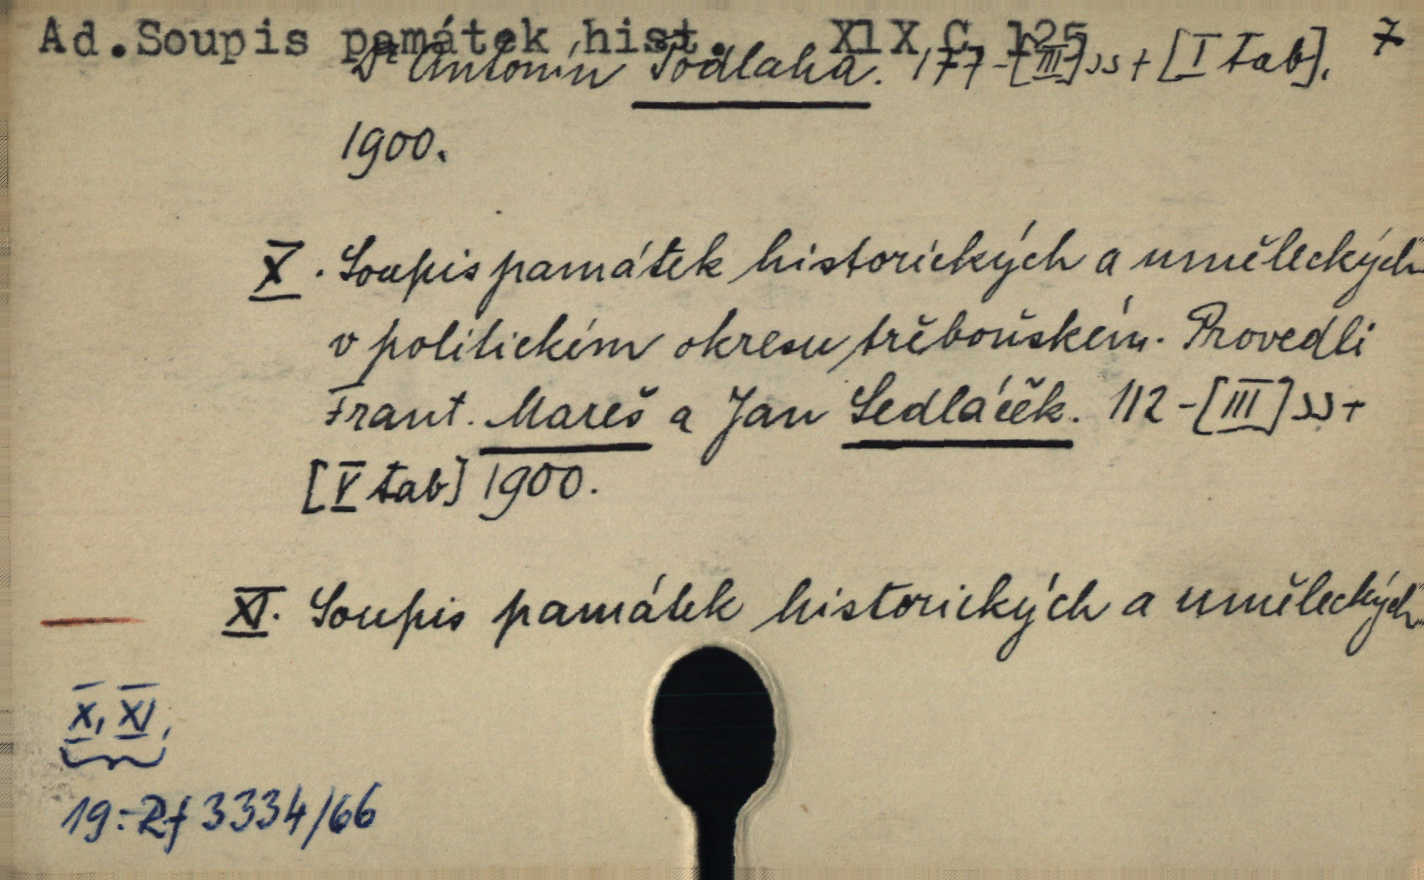 Ad.Soupis památek hist. XlX C 125 7
Dr Antonín Podlaha. 177-[III]ss+[I tab].
1900.
X. Soupis památek historických a uměleckých
v politickém okresu třeboňském. Provedli
Frant. Mareš a Jan Sedláček. 112-[III]ss+
[V tab] 1900.
XI. Soupis památek historických a uměleckých
X, XI,
19:-Rf 3334/66